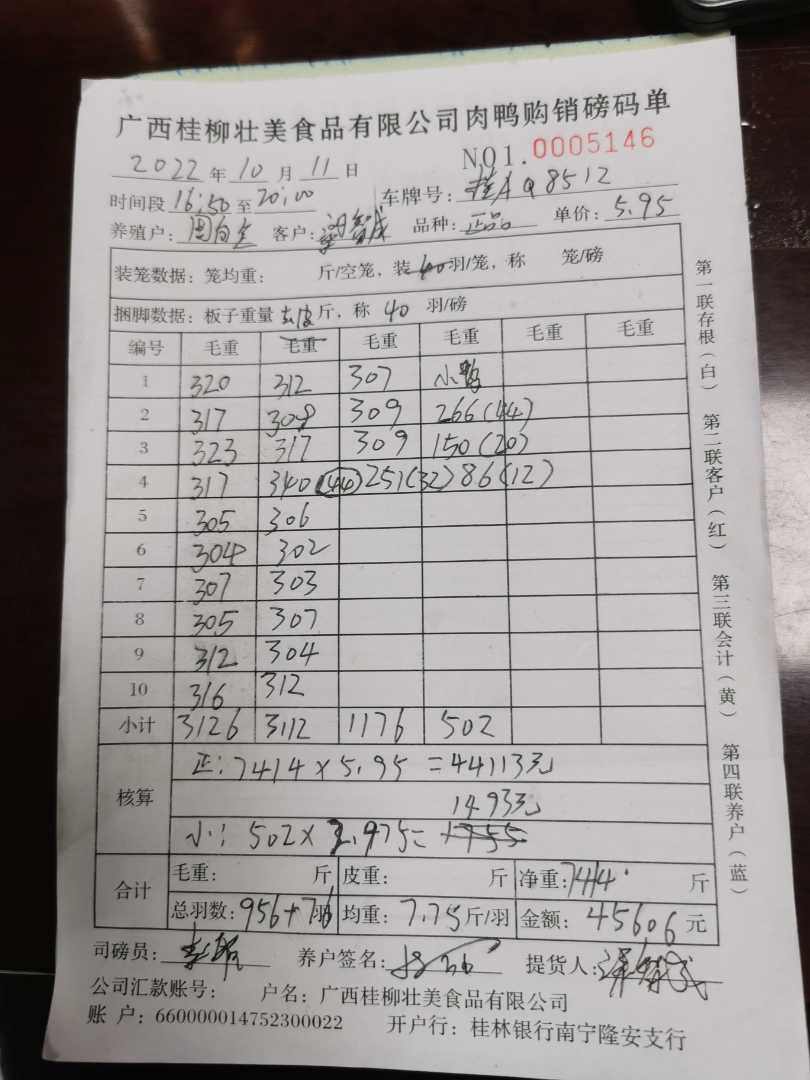 广西桂柳壮美食品有限公司肉鸭购销磅码单
NO1. 0005146
2022 年 10 月 11 日
时间段 16:50 至 20:00 车牌号: 桂A Q8512
养殖户: 客户: 品种: 正品 单价: 5.95
装笼数据: 笼均重: 斤/空笼, 装 40 羽/笼, 称 笼/磅
捆脚数据: 板子重量 去皮 斤, 称 40 羽/磅
编号 毛重 毛重 毛重 毛重 毛重 毛重
1 320 312 307 小鸭
2 317 308 309 266(44)
3 323 317 309 150(20)
4 317 340(44) 251(32) 86(12)
5 305 306
6 304 302
7 307 303
8 305 307
9 312 304
10 316 312
小计 3126 3112 1176 502
核算
正: 7414 × 5.95 = 44113元
1493元
小: 502 × 2.975 =
合计
毛重: 斤 皮重: 斤 净重: 7414 斤
总羽数: 956+76 羽 均重: 7.75 斤/羽 金额: 45606 元
司磅员: 养户签名: 提货人:
公司汇款账号: 户名: 广西桂柳壮美食品有限公司
账 户: 660000014752300022 开户行: 桂林银行南宁隆安支行
第一联存根(白) 第二联客户(红) 第三联会计(黄) 第四联养户(蓝)